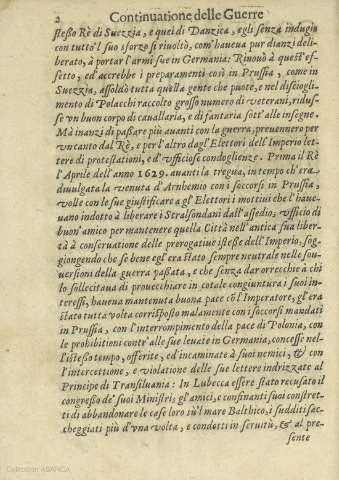 2 Continuatione delle Guerre
stesso Rè di Suezzia, e quei di Danzica, egli senza indugio
con tutto'l suo sforzo si riuoltò, com'haueua pur dianzi deli-
berato, à portar l'armi sue in Germania: Rinouò à quest' ef-
fetto, ed accrebbe i preparamenti così in Prussia, come in
Suezzia, assoldò tutta quella gente che puote, e nel discogli-
mento di Polacchi raccolto grosso numero di veterani, ridus-
se vn buon corpo di cauallaria, e di fantaria sott' alle insegne.
Mà inanzi di passare più auanti con la guerra, preuennero per
vn canto dal Rè, e per l'altro dagl' Elettori dell' Imperio let-
tere di protestationi, e d'vfficiose condoglienze. Prima il Rè
l'Aprile dell' anno 1629. auanti la tregua, in tempo ch'era
diuulgata la venuta d'Arnhemio con i soccorsi in Prussia,
volle con le sue giustificare a gl' Elettori i mottiui che l'haue-
uano indotto à liberare i Stralsondani dall'assedio; vfficio di
buon' amico per mantenere quella Città nell'antica sua liber-
tà à conseruatione delle prerogatiue istesse dell' Imperio, sog-
giongendo che se bene egl' era stato sempre neutrale nelle sou-
uersioni della guerra passata, e che senza dar orecchie à chi
lo sollecitaua di prouecchiare in cotale congiuntura i suoi in-
teressi, haueua mantenuta buona pace cō l'Imperatore, gl' era
stato tutta volta corrisposto malamente con i soccorsi mandati
in Prussia, con l'interrompimento della pace di Polonia, con
le prohibitioni contr' alle sue leuate in Germania, concesse nel-
l'istesso tempo, offerite, ed incaminate à suoi nemici, & con
l'intercettione, e violatione delle sue lettere indrizzate al
Principe di Transiluania: In Lubecca essere stato recusato il
congresso de' suoi Ministri; gl'amici, e confinanti suoi constret-
ti di abbandonare le case loro sù'l mare Balthico, i sudditi sac-
cheggiati più d'vna volta, e condotti in seruitù, & al pre-
sente
Colección ABANCA